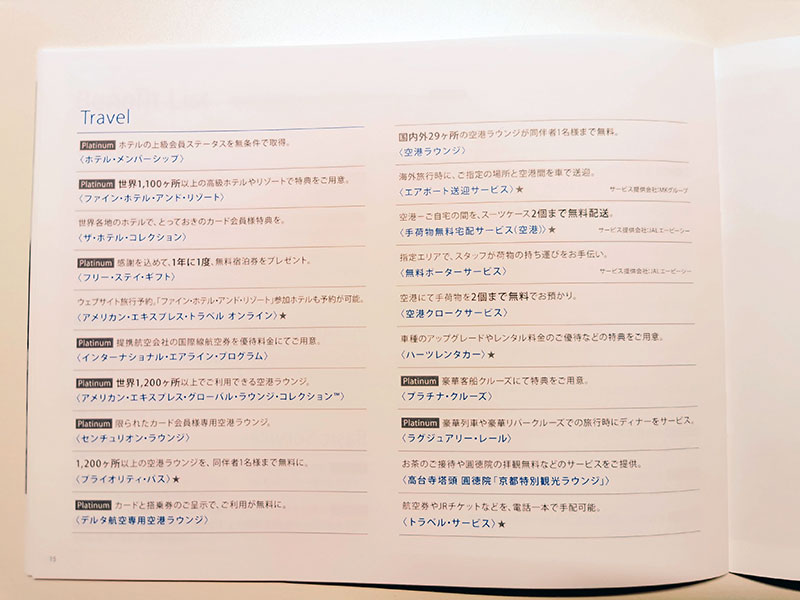 Travel
Platinum ホテルの上級会員ステータスを無条件で取得。
〈ホテル・メンバーシップ〉
Platinum 世界1,100ヶ所以上の高級ホテルやリゾートで特典をご用意。
〈ファイン・ホテル・アンド・リゾート〉
世界各地のホテルで、とっておきのカード会員様特典を。
〈ザ・ホテル・コレクション〉
Platinum 感謝を込めて、1年に1度、無料宿泊券をプレゼント。
〈フリー・ステイ・ギフト〉
ウェブサイト旅行予約。「ファイン・ホテル・アンド・リゾート」参加ホテルも予約が可能。
〈アメリカン・エキスプレス・トラベル オンライン〉★
Platinum 提携航空会社の国際線航空券を優待料金にてご用意。
〈インターナショナル・エアライン・プログラム〉
Platinum 世界1,200ヶ所以上でご利用できる空港ラウンジ。
〈アメリカン・エキスプレス・グローバル・ラウンジ・コレクション™〉
Platinum 限られたカード会員様専用空港ラウンジ。
〈センチュリオン・ラウンジ〉
1,200ヶ所以上の空港ラウンジを、同伴者1名様まで無料に。
〈プライオリティ・パス〉★
Platinum カードと搭乗券のご呈示で、ご利用が無料に。
〈デルタ航空専用空港ラウンジ〉
国内外29ヶ所の空港ラウンジが同伴者1名様まで無料。
〈空港ラウンジ〉
海外旅行時に、ご指定の場所と空港間を車で送迎。
〈エアポート送迎サービス〉★ サービス提供会社:MKグループ
空港－ご自宅の間を、スーツケース2個まで無料配送。
〈手荷物無料宅配サービス(空港)〉★ サービス提供会社:JALエービーシー
指定エリアで、スタッフが荷物の持ち運びをお手伝い。
〈無料ポーターサービス〉 サービス提供会社:JALエービーシー
空港にて手荷物を2個まで無料でお預かり。
〈空港クロークサービス〉
車種のアップグレードやレンタル料金のご優待などの特典をご用意。
〈ハーツレンタカー〉★
Platinum 豪華客船クルーズにて特典をご用意。
〈プラチナ・クルーズ〉
Platinum 豪華列車や豪華リバークルーズでの旅行時にディナーをサービス。
〈ラグジュアリー・レール〉
お茶のご接待や圓徳院の拝観無料などのサービスをご提供。
〈高台寺塔頭 圓徳院「京都特別観光ラウンジ」〉
航空券やJRチケットなどを、電話一本で手配可能。
〈トラベル・サービス〉★